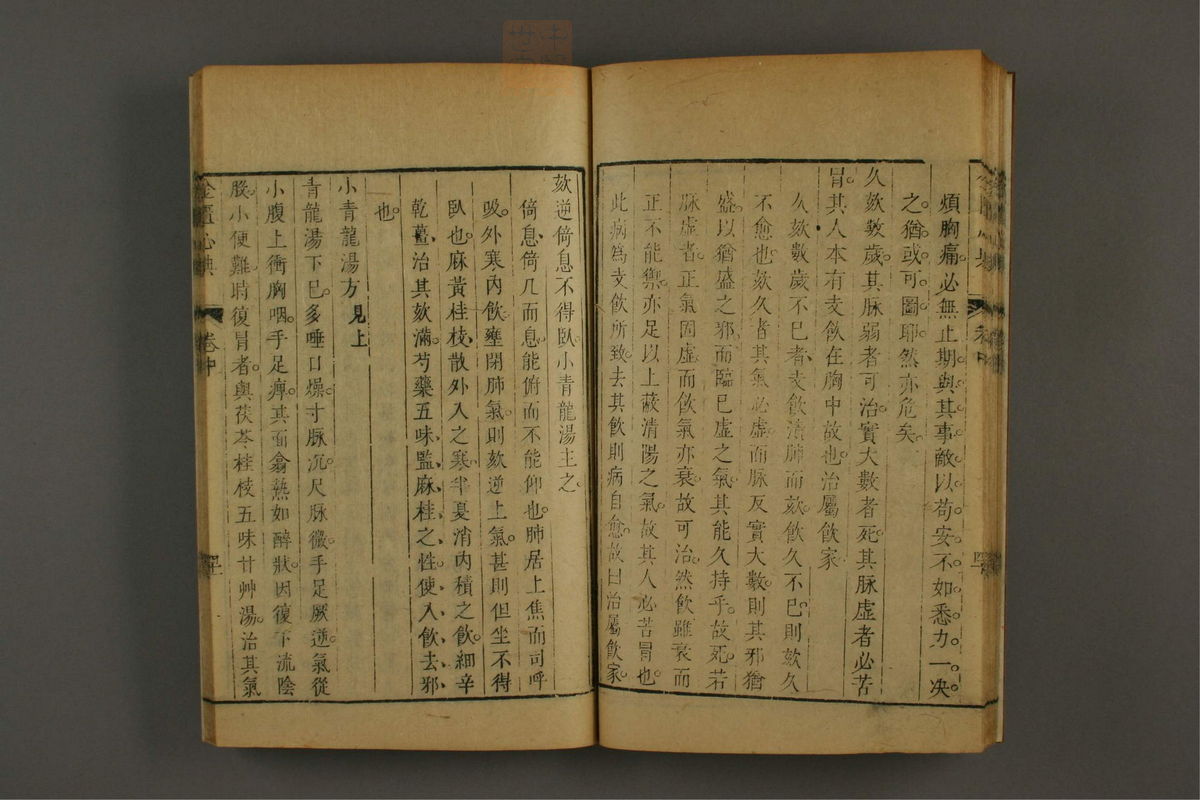 煩胸痛必無止期與其事敵以苟安不如悉力一决
之猶或可圖耶然亦危矣
久欬數歲其脉弱者可治實大數者死其脉虛者必苦
冒其人本有支飲在胸中故也治屬飲家
久欬數歲不已者支飲漬肺而欬飲久不已則欬久
不愈也欬久者其氣必虛而脉反實大數則其邪猶
盛以猶盛之邪而臨已虛之氣其能久持乎故死若
脉虛者正氣固虛而飲氣亦衰故可治然飲雖衰而
正不能禦亦足以上蔽清陽之氣故其人必苦冒也
此病爲支飲所致去其飲則病自愈故曰治屬飲家
欬逆倚息不得臥小青龍湯主之
倚息倚几而息能俯而不能仰也肺居上焦而司呼
吸外寒內飲壅閉肺氣則欬逆上氣甚則但坐不得
臥也麻黃桂枝散外入之寒半夏消內積之飲細辛
乾薑治其欬滿芍藥五味監麻桂之性使入飲去邪
也
小青龍湯方 見上
青龍湯下已多唾口燥寸脉沉尺脉微手足厥逆氣從
小腹上衝胸咽手足痺其面翕熱如醉狀因復下流陰
股小便難時復冒者與茯苓桂枝五味甘艸湯治其氣
金匱心典
卷中